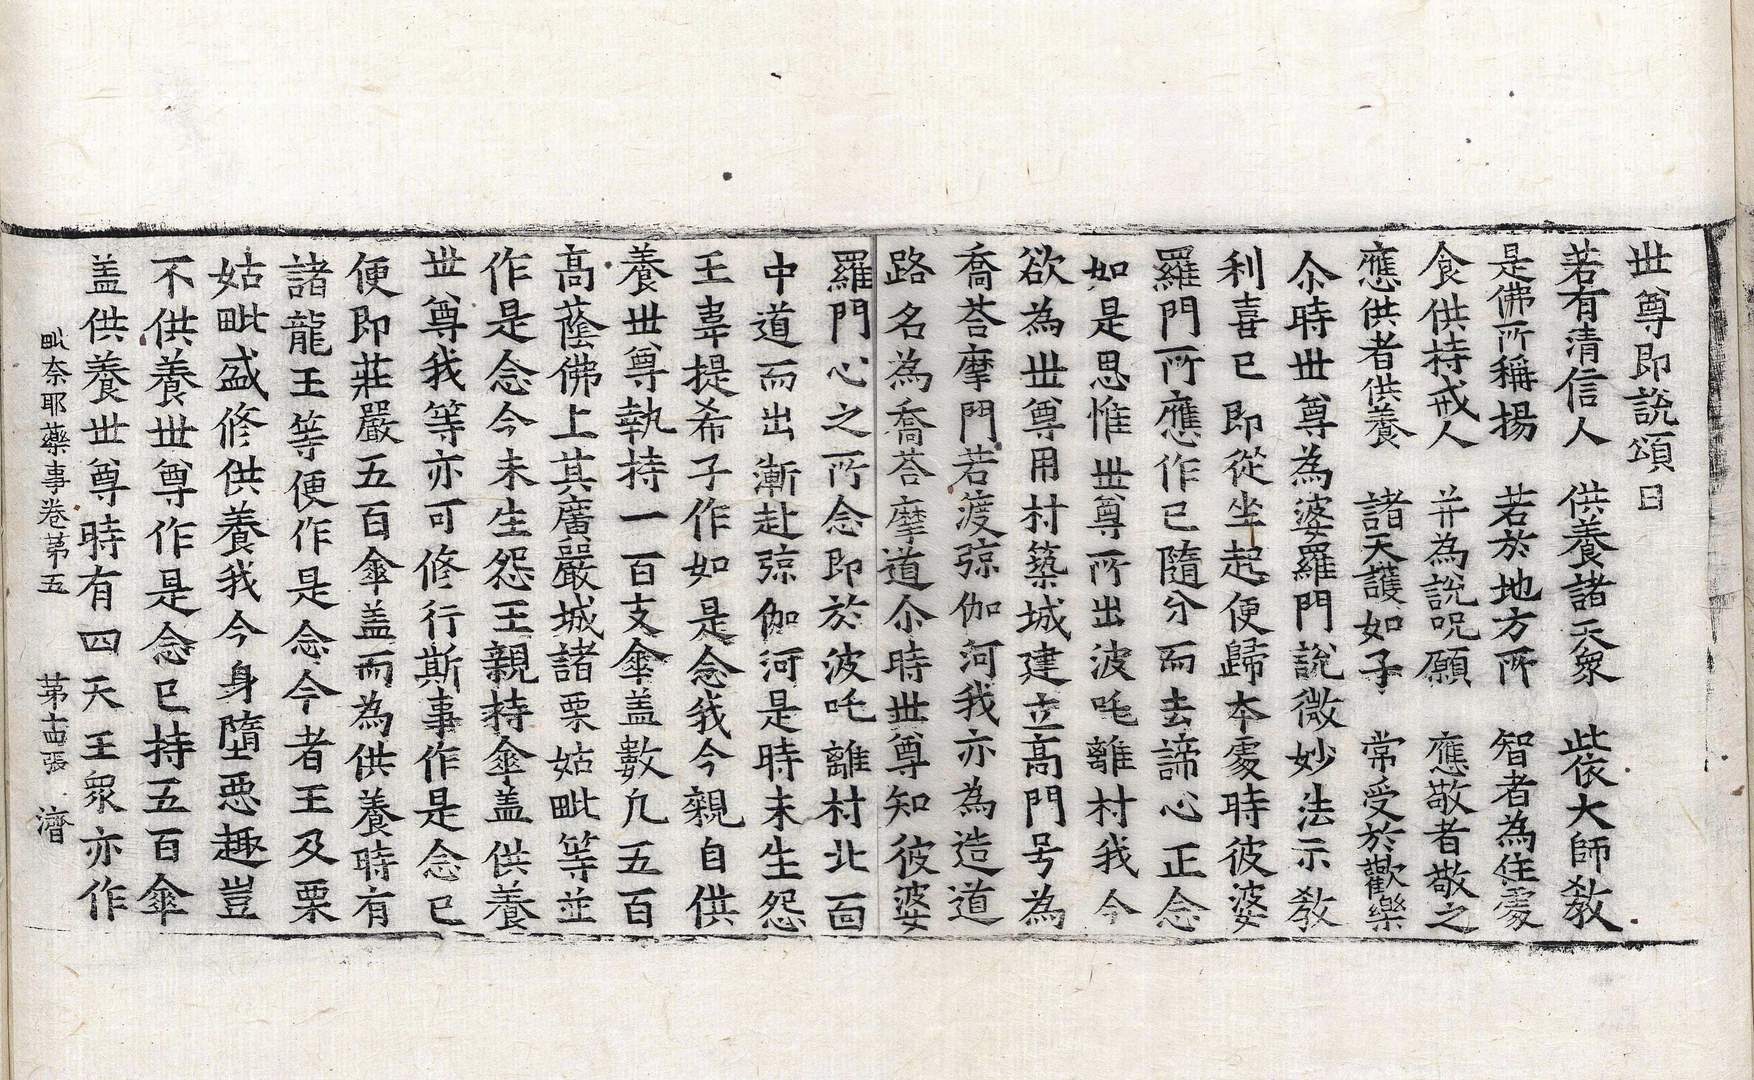 世尊即說頌曰
若有清信人　供養諸天衆　㘹依大師敎
是佛所稱揚　若於地方所　智者為住處
食供持戒人　并為說呪願　應敬者敬之
應供者供養　諸天護如子　常受於歡樂
尒時世尊為婆羅門說微妙法示敎
利喜已即從坐起便歸本處時彼婆
羅門所應作已隨分而去諦心正念
如是思惟世尊所出波吒離村我今
欲為世尊用村築城建立高門号為
喬荅摩門若渡弶伽河我亦為造道
路名為喬荅摩道尒時世尊知彼婆
羅門心之所念即於波吒離村北面
中道而出漸赴弶伽河是時未生怨
王韋提希子作如是念我今親自供
養世尊執持一百支傘盖數凡五百
高蔭佛上其廣嚴城諸栗姑毗等並
作是念今未生怨王親持傘盖供養
世尊我等亦可修行斯事作是念已
便即莊嚴五百傘盖而為供養時有
諸龍王等便作是念今者王及栗
姑毗咸修供養我今身墮惡趣豈
不供養世尊作是念已持五百傘
盖供養世尊時有四天王衆亦作
毗奈耶藥事卷第五　第古張　濟